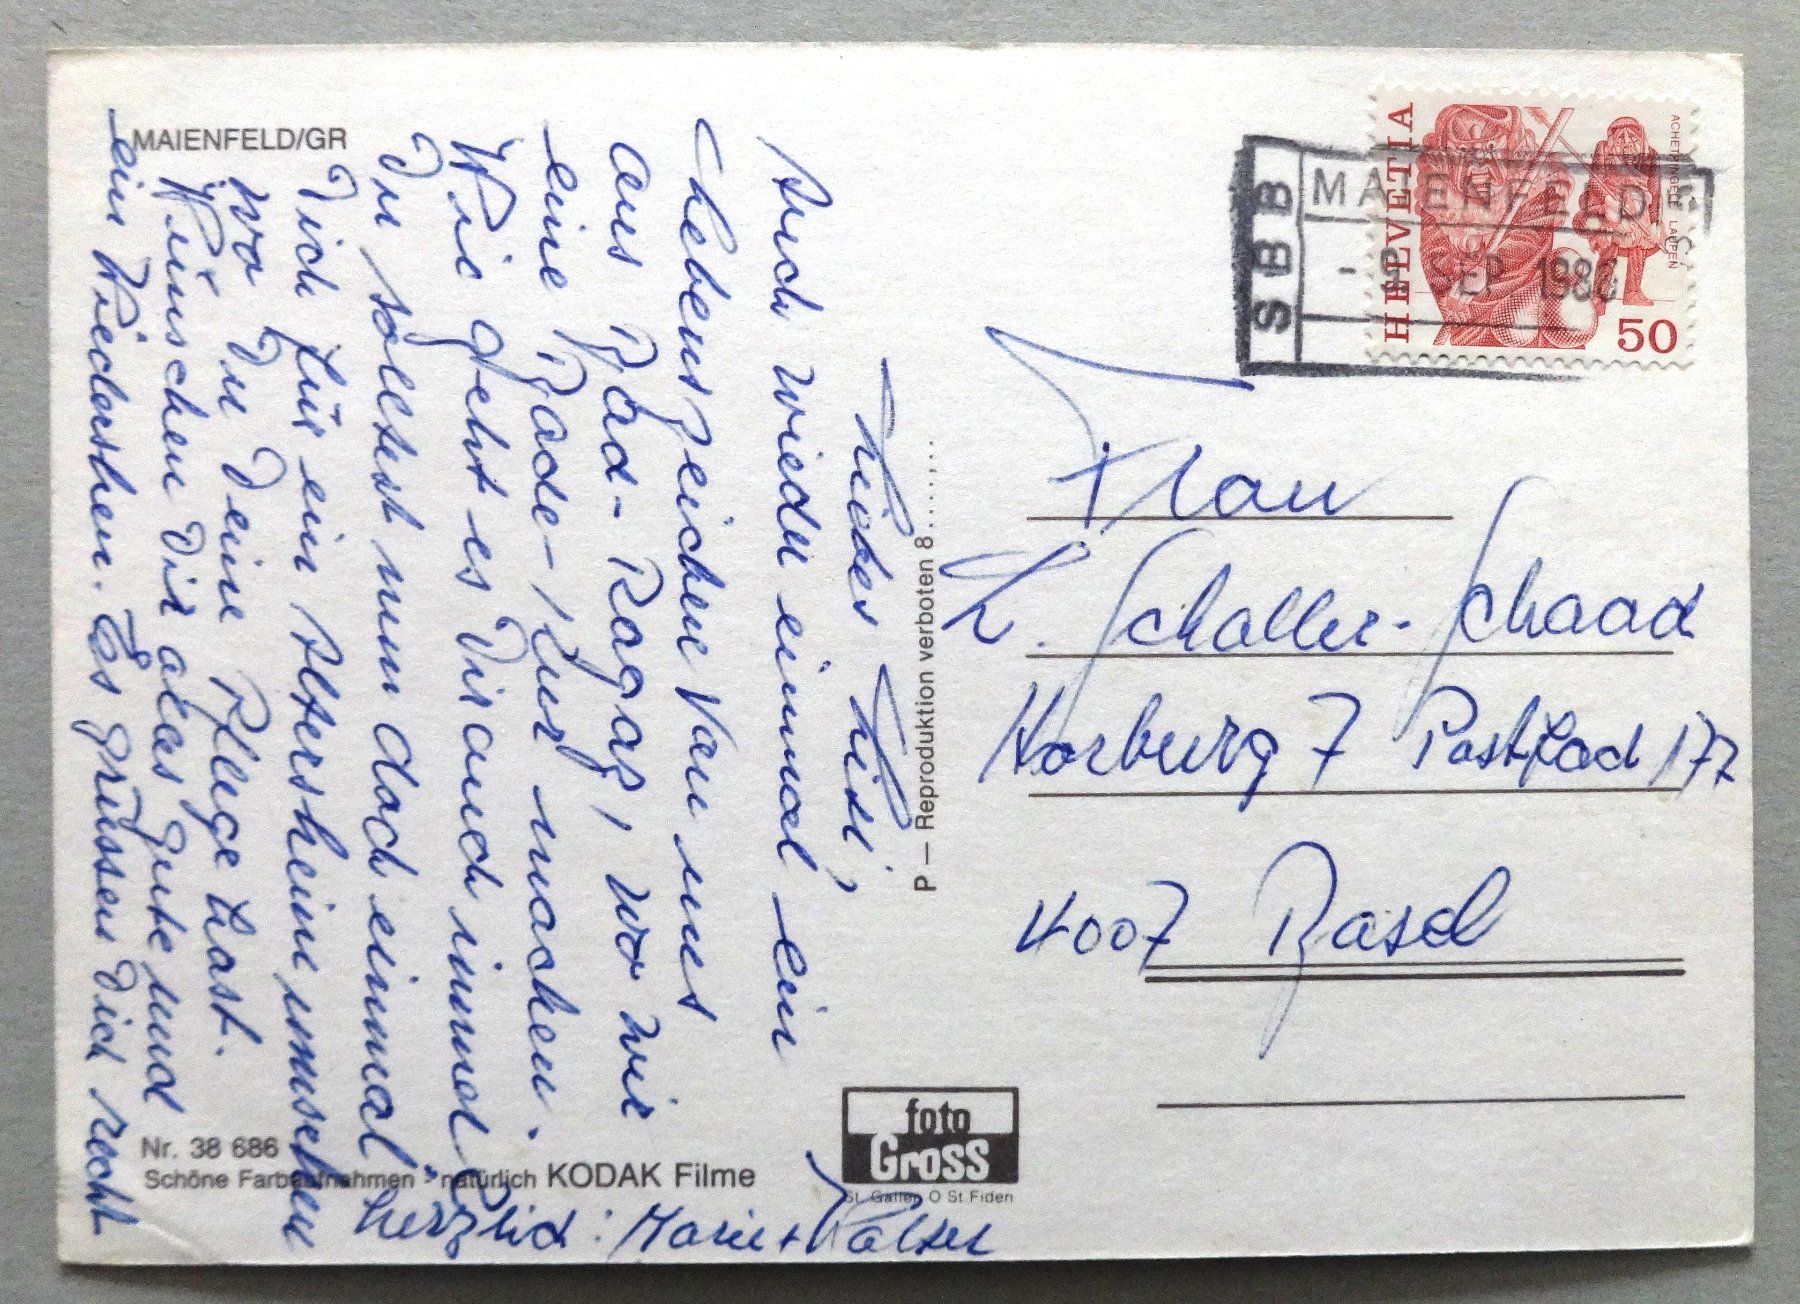 MAIENFELD/GR
Liebes Lisi,
Auch wieder einmal ein
Lebenszeichen von uns
aus Bad-Ragaz, wo wir
eine Bade-Kur machen.
Wie geht es Dir auch immer
Du solltest nun doch einmal
Dich für ein Altersheim umsehen
wo Du Deine Pflege hast.
Wünschen Dir alles Gute und
ein Wiedersehen. Es grüssen Dich recht
herzlich: Marie + Walter
Nr. 38 686
Schöne Farbaufnahmen natürlich KODAK Filme
P — Reproduktion verboten 8
foto
Gross
St. Gallen O St. Fiden
SBB
MAIENFELD
SEP 1986
HELVETIA
ACHETRINGELE LAUPEN
50
Frau
L. Schaller-Schaad
Horburg 7 Postfach 177
4007 Basel